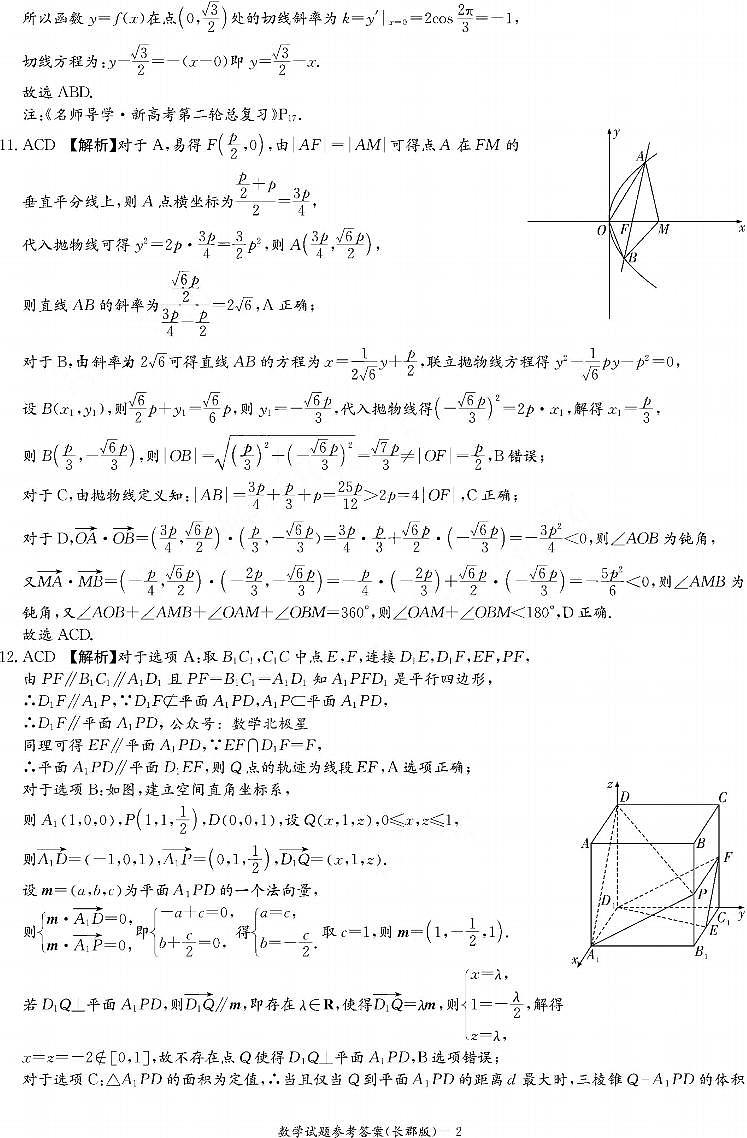 所以函数 y=f(x)在点(0,√3/2)处的切线斜率为 k=y′|ₓ₌₀=2cos 2π/3=−1,
切线方程为:y−√3/2=−(x−0)即 y=√3/2−x.
故选 ABD.
注:《名师导学·新高考第二轮总复习》P₁₇.
11. ACD 【解析】对于 A,易得 F(p/2,0),由|AF|=|AM|可得点 A 在 FM 的
垂直平分线上,则 A 点横坐标为 (p/2+p)/2=3p/4,
代入抛物线可得 y²=2p·3p/4=3/2p²,则 A(3p/4,√6p/2),
则直线 AB 的斜率为 (√6p/2)/(3p/4−p/2)=2√6,A 正确;
对于 B,由斜率为 2√6可得直线 AB 的方程为 x=1/(2√6)y+p/2,联立抛物线方程得 y²−1/√6py−p²=0,
设 B(x₁,y₁),则√6/2p+y₁=√6/6p,则 y₁=−√6p/3,代入抛物线得(−√6p/3)²=2p·x₁,解得 x₁=p/3,
则 B(p/3,−√6p/3),则|OB|=√((p/3)²+(−√6p/3)²)=√7p/3≠|OF|=p/2,B 错误;
对于 C,由抛物线定义知:|AB|=3p/4+p/3+p=25p/12>2p=4|OF|,C 正确;
对于 D,OA→·OB→=(3p/4,√6p/2)·(p/3,−√6p/3)=3p/4·p/3+√6p/2·(−√6p/3)=−3p²/4<0,则∠AOB 为钝角,
又MA→·MB→=(−p/4,√6p/2)·(−2p/3,−√6p/3)=−p/4·(−2p/3)+√6p/2·(−√6p/3)=−5p²/6<0,则∠AMB 为
钝角,又∠AOB+∠AMB+∠OAM+∠OBM=360°,则∠OAM+∠OBM<180°,D 正确.
故选 ACD.
y
A
O F M x
B
12. ACD 【解析】对于选项 A:取 B₁C₁,C₁C 中点 E,F,连接 D₁E,D₁F,EF,PF,
由 PF∥B₁C₁∥A₁D₁ 且 PF=B₁C₁=A₁D₁ 知 A₁PFD₁ 是平行四边形,
∴D₁F∥A₁P,∵D₁F⊄平面 A₁PD,A₁P⊂平面 A₁PD,
∴D₁F∥平面 A₁PD, 公众号: 数学北极星
同理可得 EF∥平面 A₁PD,∵EF∩D₁F=F,
∴平面 A₁PD∥平面 D₁EF,则 Q 点的轨迹为线段 EF,A 选项正确;
对于选项 B:如图,建立空间直角坐标系,
则 A₁(1,0,0),P(1,1,1/2),D(0,0,1),设 Q(x,1,z),0≤x,z≤1,
则A₁D→=(−1,0,1),A₁P→=(0,1,1/2),D₁Q→=(x,1,z).
设 m=(a,b,c)为平面 A₁PD 的一个法向量,
则{m·A₁D→=0, m·A₁P→=0, 即{−a+c=0, b+c/2=0, 得{a=c, b=−c/2. 取 c=1,则 m=(1,−1/2,1).
若 D₁Q⊥平面 A₁PD,则D₁Q→∥m,即存在 λ∈R,使得D₁Q→=λm,则{x=λ, 1=−λ/2, z=λ, 解得
x=z=−2∉[0,1],故不存在点 Q 使得 D₁Q⊥平面 A₁PD,B 选项错误;
对于选项 C:△A₁PD 的面积为定值,∴当且仅当 Q 到平面 A₁PD 的距离 d 最大时,三棱锥 Q−A₁PD 的体积
z
D C
A B
F
P
D₁ C₁ y
E
x A₁ B₁
数学试题参考答案(长郡版)−2